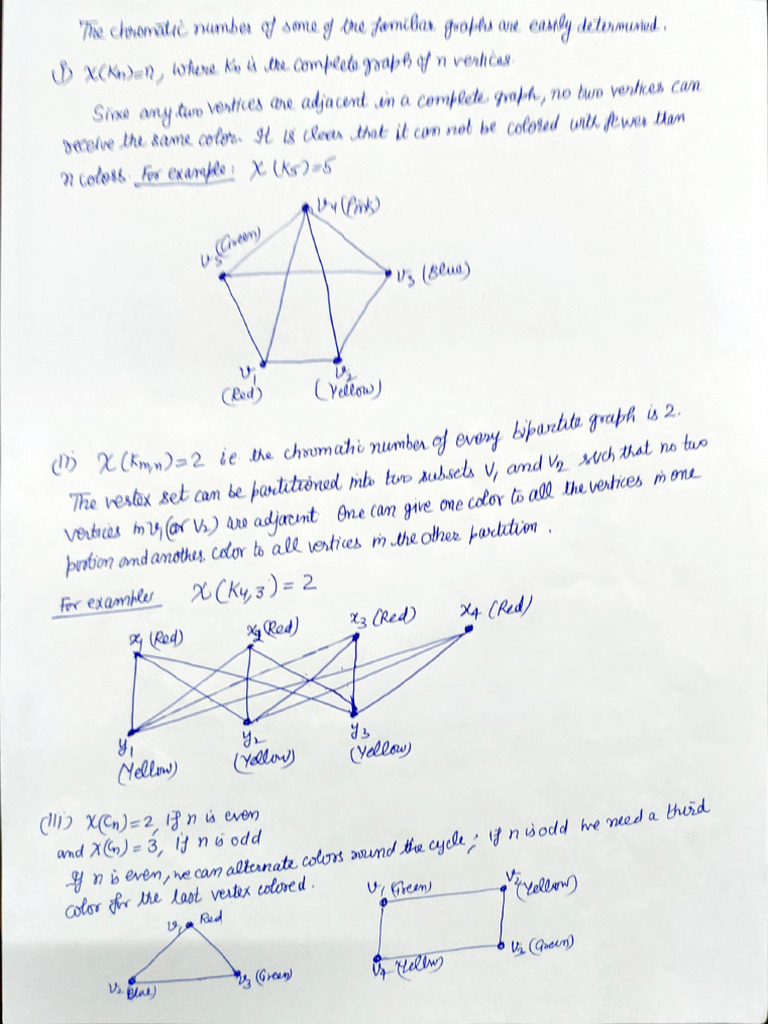 The chromatic number of some of the familiar graphs are easily determined.
(I) χ(Kn)=n, where Kn is the complete graph of n vertices.
Since any two vertices are adjacent in a complete graph, no two vertices can
receive the same color. It is clear that it can not be colored with fewer than
n colors. For example: χ(K5)=5
v4 (Pink)
v5 (Green)
v3 (Blue)
v1 v2
(Red) (Yellow)
(II) χ(Km,n)=2 ie the chromatic number of every bipartite graph is 2.
The vertex set can be partitioned into two subsets V1 and V2 such that no two
vertices in V1 (or V2) are adjacent One can give one color to all the vertices in one
portion and another color to all vertices in the other partition.
For example χ(K4,3)=2
x1 (Red) x2 (Red) x3 (Red) x4 (Red)
y1 y2 y3
(Yellow) (Yellow) (Yellow)
(III) χ(Cn)=2, if n is even
and χ(Cn)=3, if n is odd
If n is even, we can alternate colors round the cycle; if n is odd we need a third
color for the last vertex colored.
v1 (Green) (Yellow)
v1 Red
v4 (Yellow) (Green)
v2 Blue) v3 (Green)